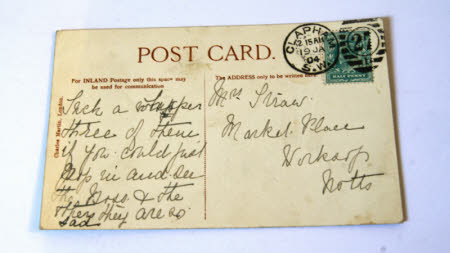 POST CARD.
For INLAND Postage only this space may
be used for communication
The ADDRESS only to be written here
Charles Martin, London.
CLAPHAM
S.W.
12.15AM
19 JA
04
2
HALF PENNY
Such a whopper
three of them
if you could just
pop in and see
the Boss & the
they are so
sad
Mrs Straw
Market Place
Worksop
Notts